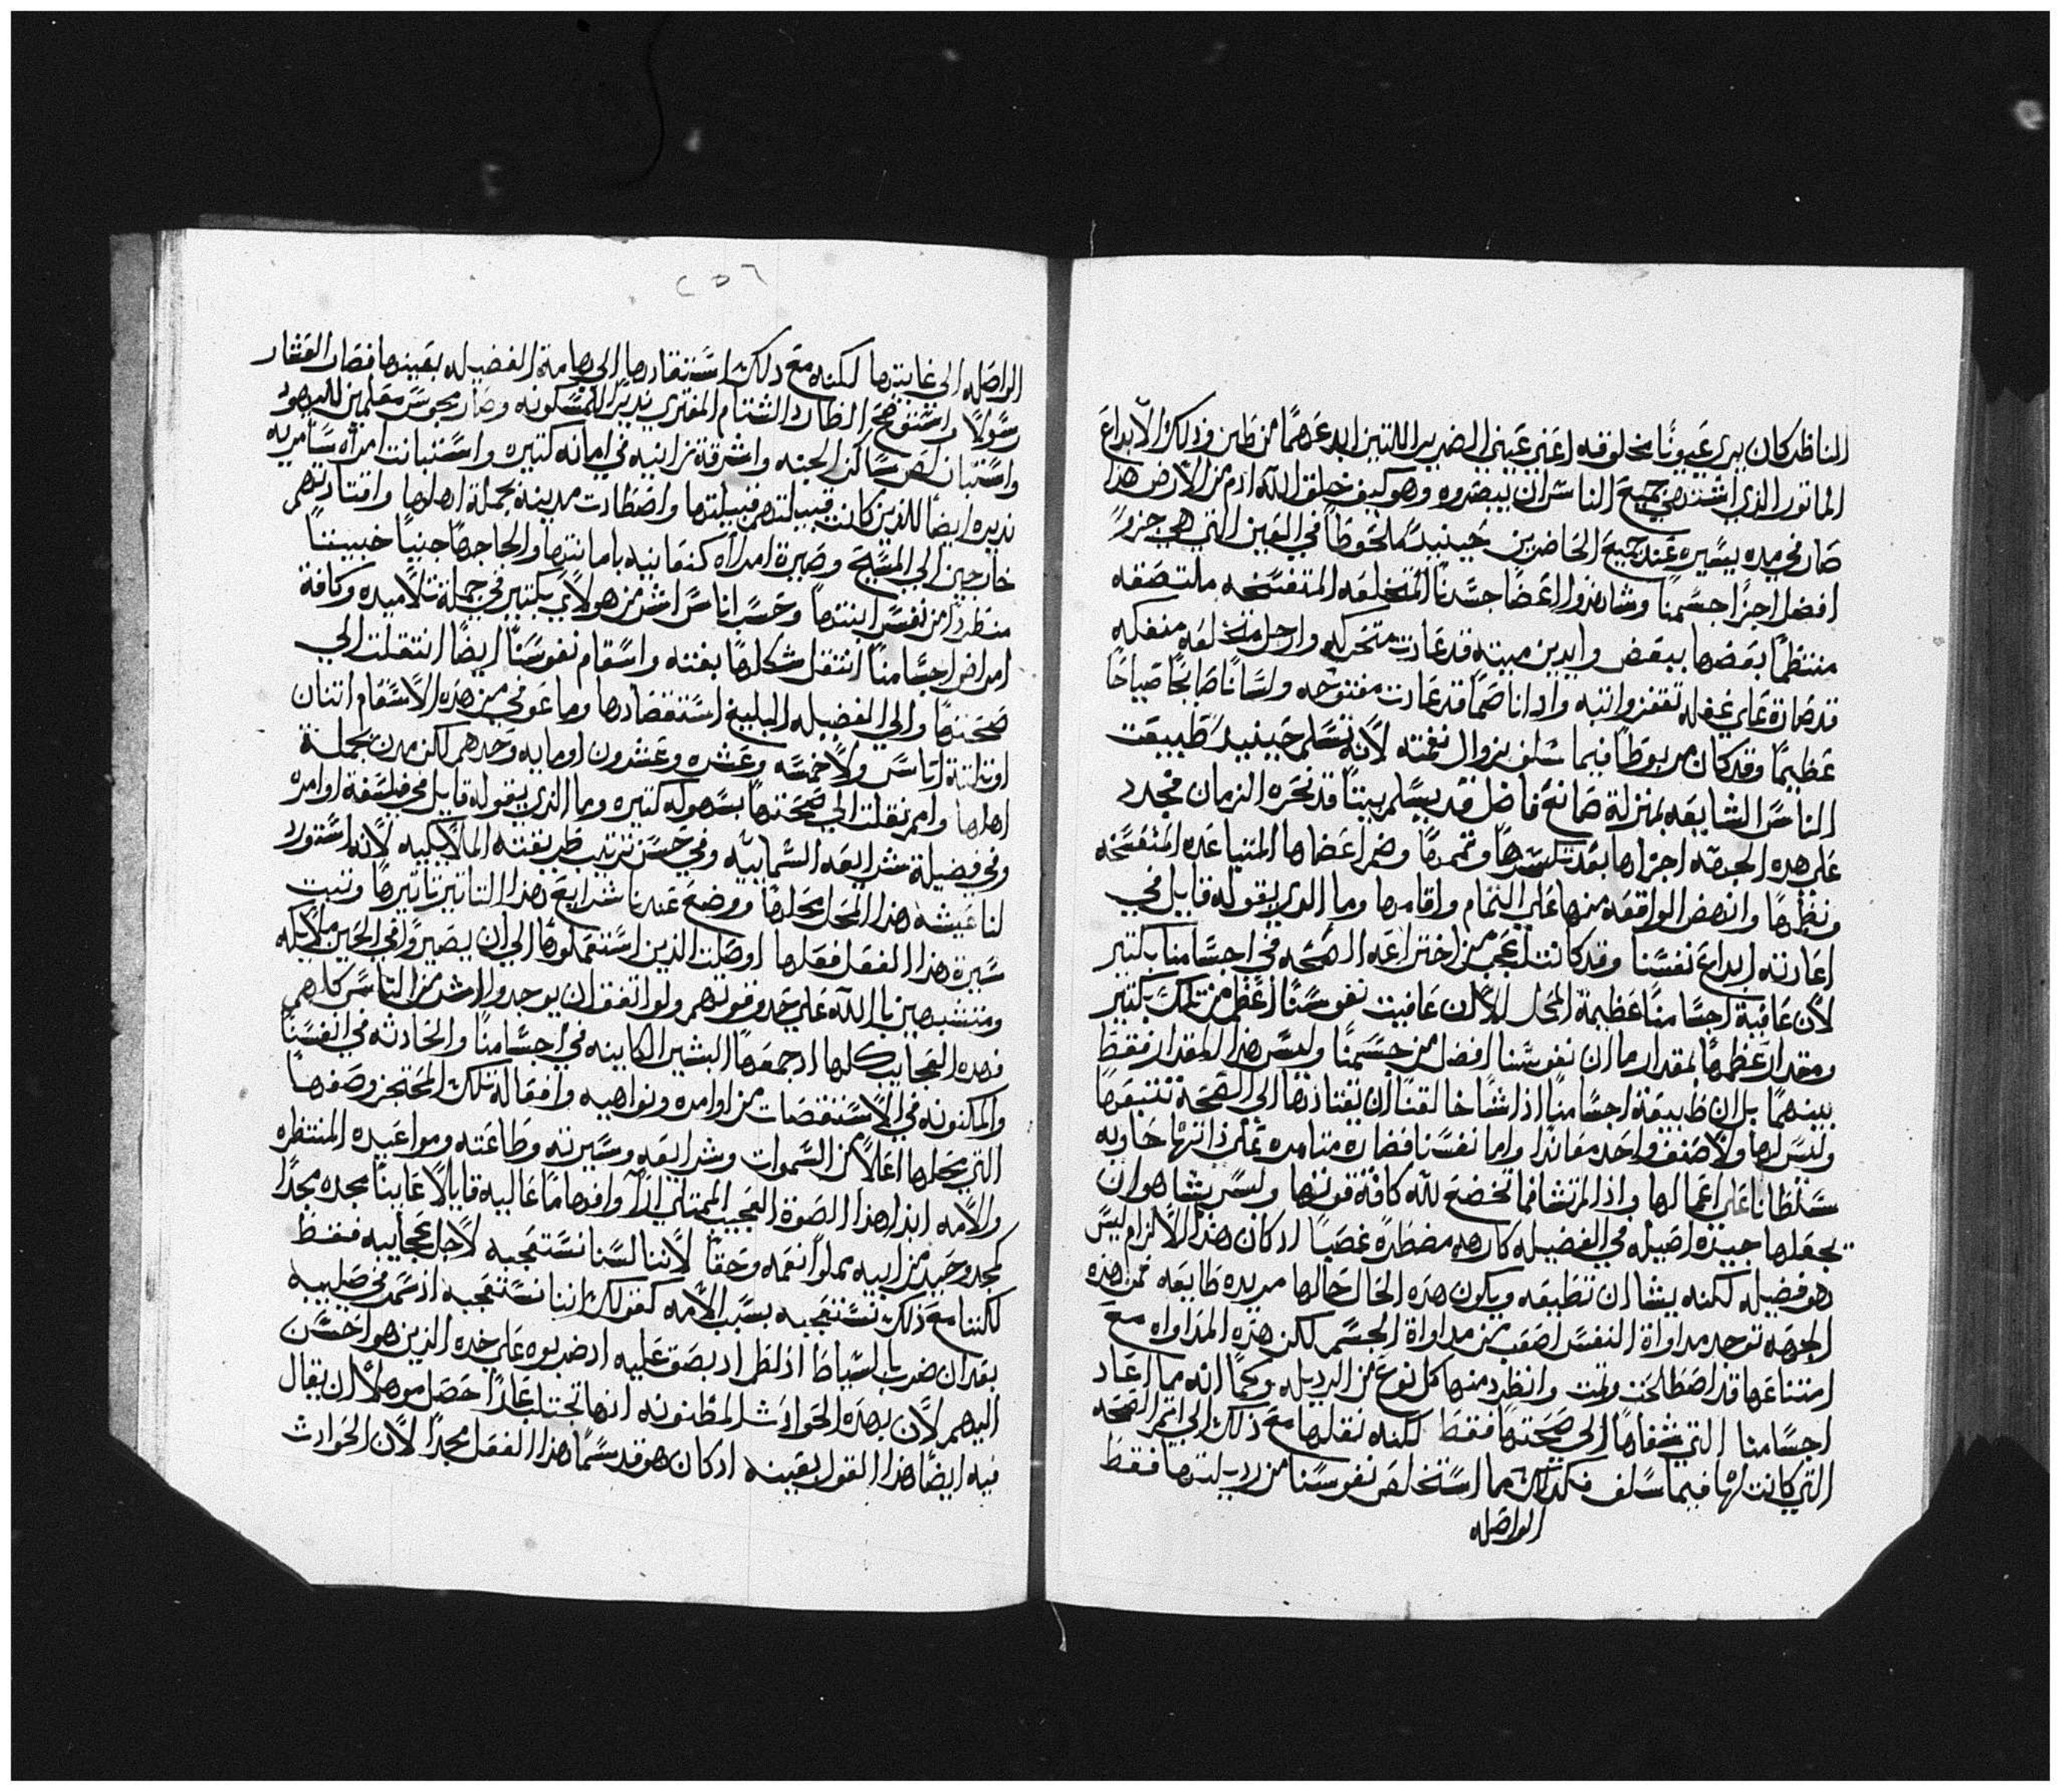 الناظر كان يرى عيونًا مخلوقه اعني عيني الضرير اللتين ابدعهمًا من طين وذلك الابداع
الماتور الذي اشتهي جميع الناس ان يبصروه وهو كيف خلق الله ادم من الارض هذا
صار في مده يسيره عند جميع الحاضرين حينيد ملحوظًا في العين التي هي جزو
افضل اجزا جسمنا وشاهدوا اعضا جسدنا المتخلعه المتفسخه ملتصقه
منتظمًا بعضها ببعض وايدين ميته قد عادت متحركه وارجل متخلعه منفكه
قد صارة علي غفله تقفز واتبه واداناً صمًا قد عادت مفتوحه ولسانًا صايحًا صياحًا
عظيمًا وقد كان مربوطًا فيما سلف بزوال نغمته لانه تسلم حينيد طبيعت
الناس الشايعه بمنزلة صانع فاضل قد يسلم بيتًا قد نخره الزمان فجدد
علي هده الجهه اجزاها بعد تكسرها وتممها وضم اعضاها المتباعده المتفسخه
ونظمها وانهض الواقعه منها علي التمام واقامها وما الدي يقوله قايل في
اعادته ابداع نفسنا وقد كانت اعجب من اختراعه الصحه في اجسامنا بكتير
لان عافية اجسامنا عظيمة المحل الا ان عافيت نفوسنا اعظم من تلك بكتير
ومقدار عظمها بمقدار ما ان نفوسنا افضل من جسمنا وليس هذا المقدار فقط
بينهما بل ان طبيعة اجسامنا اذا شا خالقنا ان يقتادها الي الصحة تتبعها
وليس لها ولا صنف واحد معاندًا واما نفسنا فضاره متامره علي ذاتها حاويه
سلطانا علي اعمالها واذا لم تشا فما تخضع لله كافة قوتها وليس يشا هو ان
يجعلها جيده اصيله في الفضيله كارهه مضطره غصبًا اد كان هذا الالزام ليس
هو فضيله لكنه يشا ان تطيعه ويكون هذه الحال حالها مريده طايعه فمن هذه
الجهه توجد مداواة النفس اصعب من مداواة الجسم لكن هذه المداواه مع
امتناعها قد اصطلحت وتمت وانطرد منها كل نوع من الرديله وكما انه ما اعاد
اجسامنا التي شفاها الي صحتها فقط لكنه نقلها مع ذلك الي اتم الصحه
التي كانت لها فيما سلف فكدلك ما استخلص نفوسنا من رديلتها فقط
الواصله
٢٥٦
الواصله الي غايتها لكنه مع دلك استقادها الي هامة الفضيله بعينها فصار العشار
رسولًا واستوضح الطارد الشتام المفتري نديرًا للمسكونه وصار مجوس معلمين لليهود
واستبان لص ساكن الجنه واشرقة زانيه في امانه كتيره واستبانت امراه سامريه
نديره ايضًا للذين كانت قبيلتهم قبيلتها واصطادت مدينة بجملة اهلها واقتادتهم
خارجين الي المسيح وصيرة امراه كنعانيه بامانتها والحاجها جنيًا خبيتًا
منطردًا من نفس ابنتها وحسب اناس اشر من هولاي بكتير في جملة تلاميده وكافة
امراض اجسامنا انتقل شكلها بغته واسقام نفوسنا ايضًا انتقلت الي
صحتها والي الفضيله البليغ استقصادها وما عوفي من هذه الاسقام اتنان
او تلتة اناس ولا خمسه وعشره وعشرون او مايه وحدهم لكن مدن بجملة
اهلها وامم نقلت الي صحتها بسهوله كتيره وما الذي يقوله قايل في فلسفة اوامره
وفي فضيلة شرايعه السمايية وفي حسن ترتيب طريقته الملايكيه لانه استورد
لنا عيشه هذا المحل محلها ووضع عندنا شرايع هذا التاتير تاتيرها وتبت
سيرة هذا الفعل فعلها اوصلت الذين استعملوها الي ان يصيروا في الحين ملايكه
ومتشبهين بالله علي حدو قوتهم ولو اتفق ان يوجدوا اشر من الناس كلهم
فهده العجايب كلها ادجمعها البشير الكاينه في اجسامنا والحادته في انفسنا
والمكنونه في الاستقصات من اوامره ونواهيه وافعاله تلك المحتجز وصفها
التي محلها اعلا من السموات وشرايعه وسيرته وطاعته ومواعيده المنتظره
والامه ابدا هذا الصوة العجيب الممتلي اراً وافهامًا عاليه قايلًا عاينا مجده مجدًا
كمجد وحيد من ابيه مملوًا نعمه وحقًا لاننا لسنا نستعجبه لاجل عجايبه فقط
لكننا مع ذلك نستعجبه بسبب الامه كقولك اننا نستعجبه اذ سمر في صليبه
بعد ان ضرب بالسياط اذ لطم اد بصق عليه ادضربوه علي خده الذين هو احسن
اليهم لان بهذه الحوادث المظنونه انها تجتلب عارًا حصل موهلًا ان يقال
فيه ايضًا هذا القول بعينه ادكان هو قد سما هذا الفعل مجدًا لان الحوادث